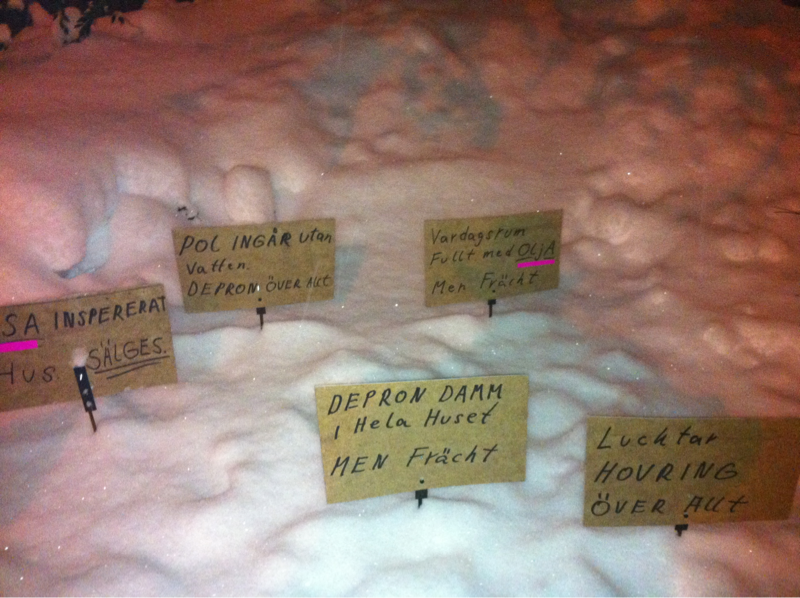 SA INSPERERAT
HUS SÄLGES.
POL INGÅR utan
Vatten.
DEPRON ÖVER Allt
Vardagsrum
Fullt med OLjA
Men Frächt
DEPRON DAMM
I Hela Huset
MEN Frächt
Lucktar
HOVRING
ÖVER Allt